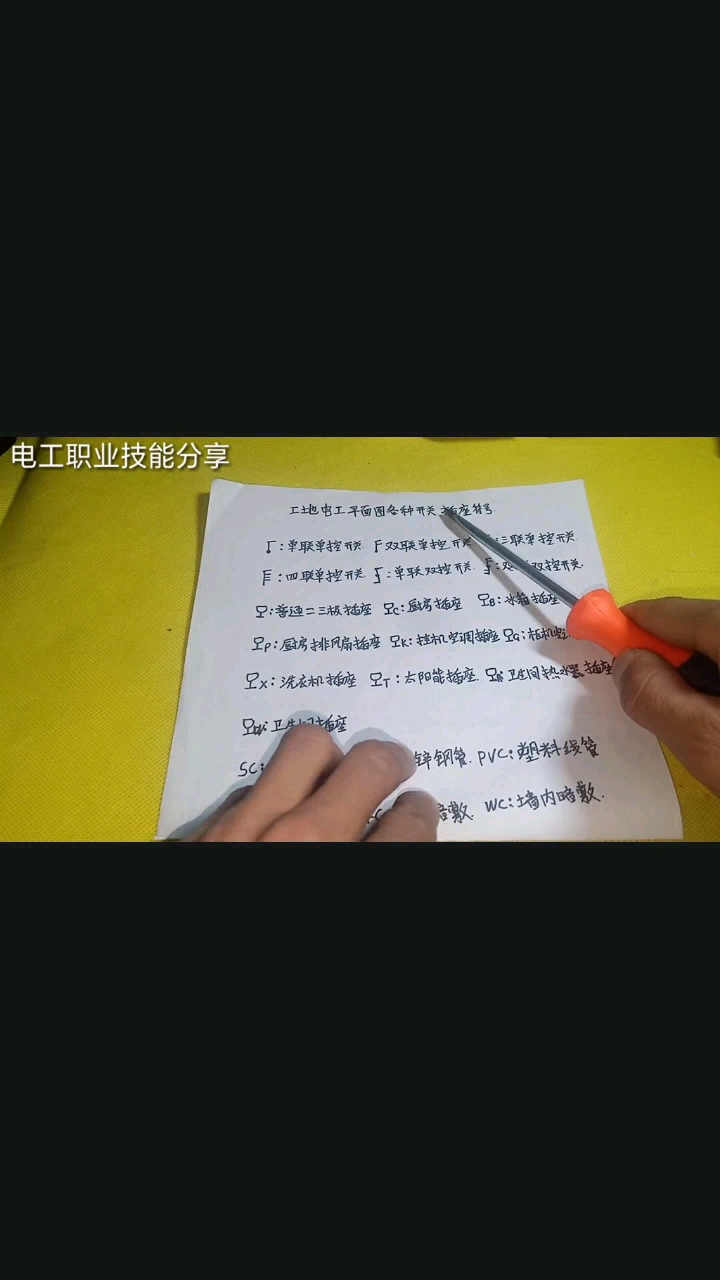 电工职业技能分享
工地电工平面图各种开关插座符号
单联单控开关 双联单控开关 三联单控开关
四联单控开关 单联双控开关 双控开关.
普通二三极插座 C:厨房插座 B:冰箱插座
P:厨房排风扇插座 K:挂机空调插座 G:柜机空
X:洗衣机插座 T:太阳能插座. 卫生间热水器插座
卫生间插座
SC: 锌钢管. PVC:塑料线管
暗敷. WC:墙内暗敷.